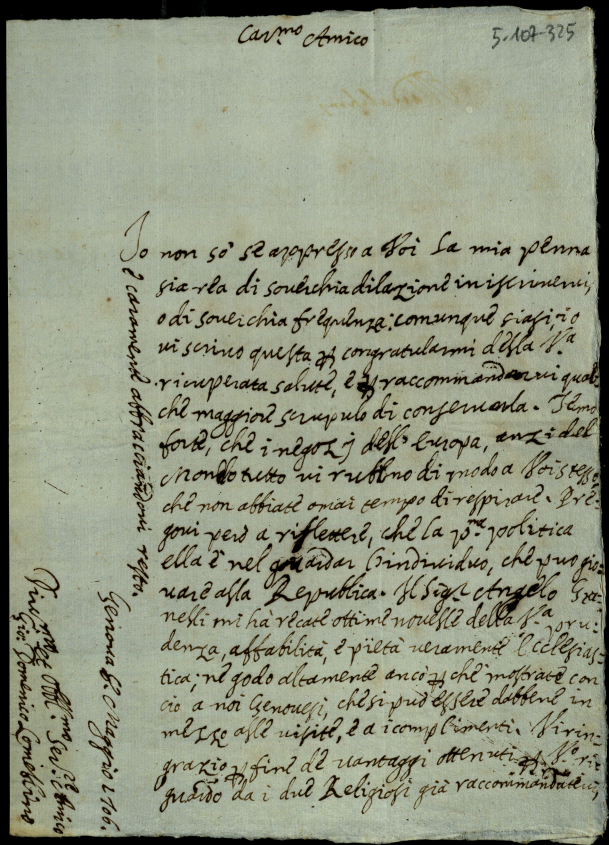 Car.mo Amico
5.107-325
Io non sò se appresso a Voi la mia penna
sia rea di soverchia dilazione in iscrivervi,
o di soverchia frequenza: comunque siasi, io
vi scrivo questa per congratularmi della V.a
ricuperata salute, e per raccommandarvi qual-
che maggiore scrupulo di conservarla. Temo
forte, che i negozj dell' Europa, anzi del
Mondo tutto vi rubbino di modo a Voi stesso,
che non abbiate omai tempo di respirare. Pre-
govi però a riflettere, che la p.ma politica
ella è nel guardar l'individuo, che può gio-
vare alla Republica. Il Sig.r Angelo
nelli mi ha recate ottime novelle della V.a pru-
denza, affabilità, e pietà veramente Ecclesias-
tica; nè godo altamente anco perche mostrate con
ciò a noi Genovesi, che si può essere dabbene in
mezzo alle visite, e a i complimenti. Vi rin-
grazio per fine de vantaggi ottenuti per V.o ri-
guardo da i due Religiosi già raccommandativi,
e caramente abbracciandovi resto.
Genova Maggio 1706.
Obbl.mo Ser.re e Amico
Gio: Domenico Lomellino